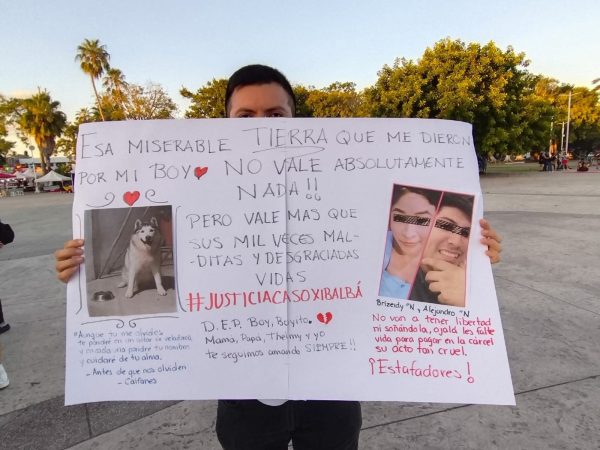 ESA MISERABLE TIERRA QUE ME DIERON
POR MI BOY NO VALE ABSOLUTAMENTE
NADA !!
PERO VALE MAS QUE
SUS MIL VECES MAL-
DITAS Y DESGRACIADAS
VIDAS
#JUSTICIACASOXIBALBÁ
D.E.P. Boy, Boyito.
Mama, Papá, Thelmy y yo
te seguimos amando SIEMPRE!!
"Aunque tu me olvides
te pondré en un altar de veladoras
y en cada una pondré tu nombre
y cuidaré de tu alma.
- Antes de que nos olviden
- Caifanes
Brizeidy "N y Alejandro "N
No van a tener libertad
ni soñándola, ojalá les falte
vida para pagar en la cárcel
su acto tan cruel.
¡Estafadores!